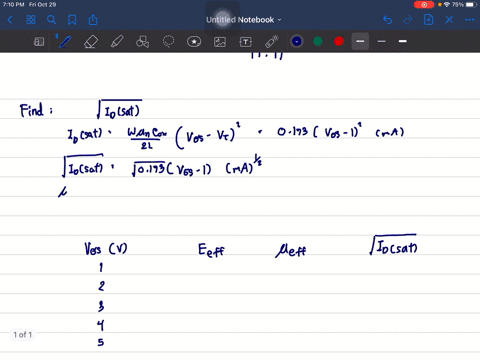 7:10 PM Fri Oct 29
75%
Untitled Notebook
Find : √I_D(sat)
I_D(sat) = Wμ_nC_ox/2L (V_GS - V_T)² = 0.173 (V_GS - 1)² (mA)
√I_D(sat) = √0.173 (V_GS - 1) (mA)^1/2
μ
V_GS (V) E_eff μ_eff √I_D(sat)
1
2
3
4
1 of 1
5